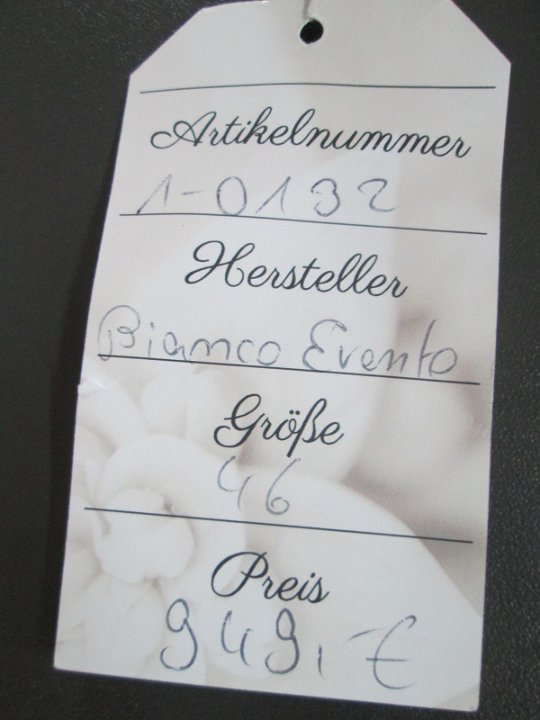 Artikelnummer
1-0132
Hersteller
Bianco Evento
Größe
46
Preis
949,-€